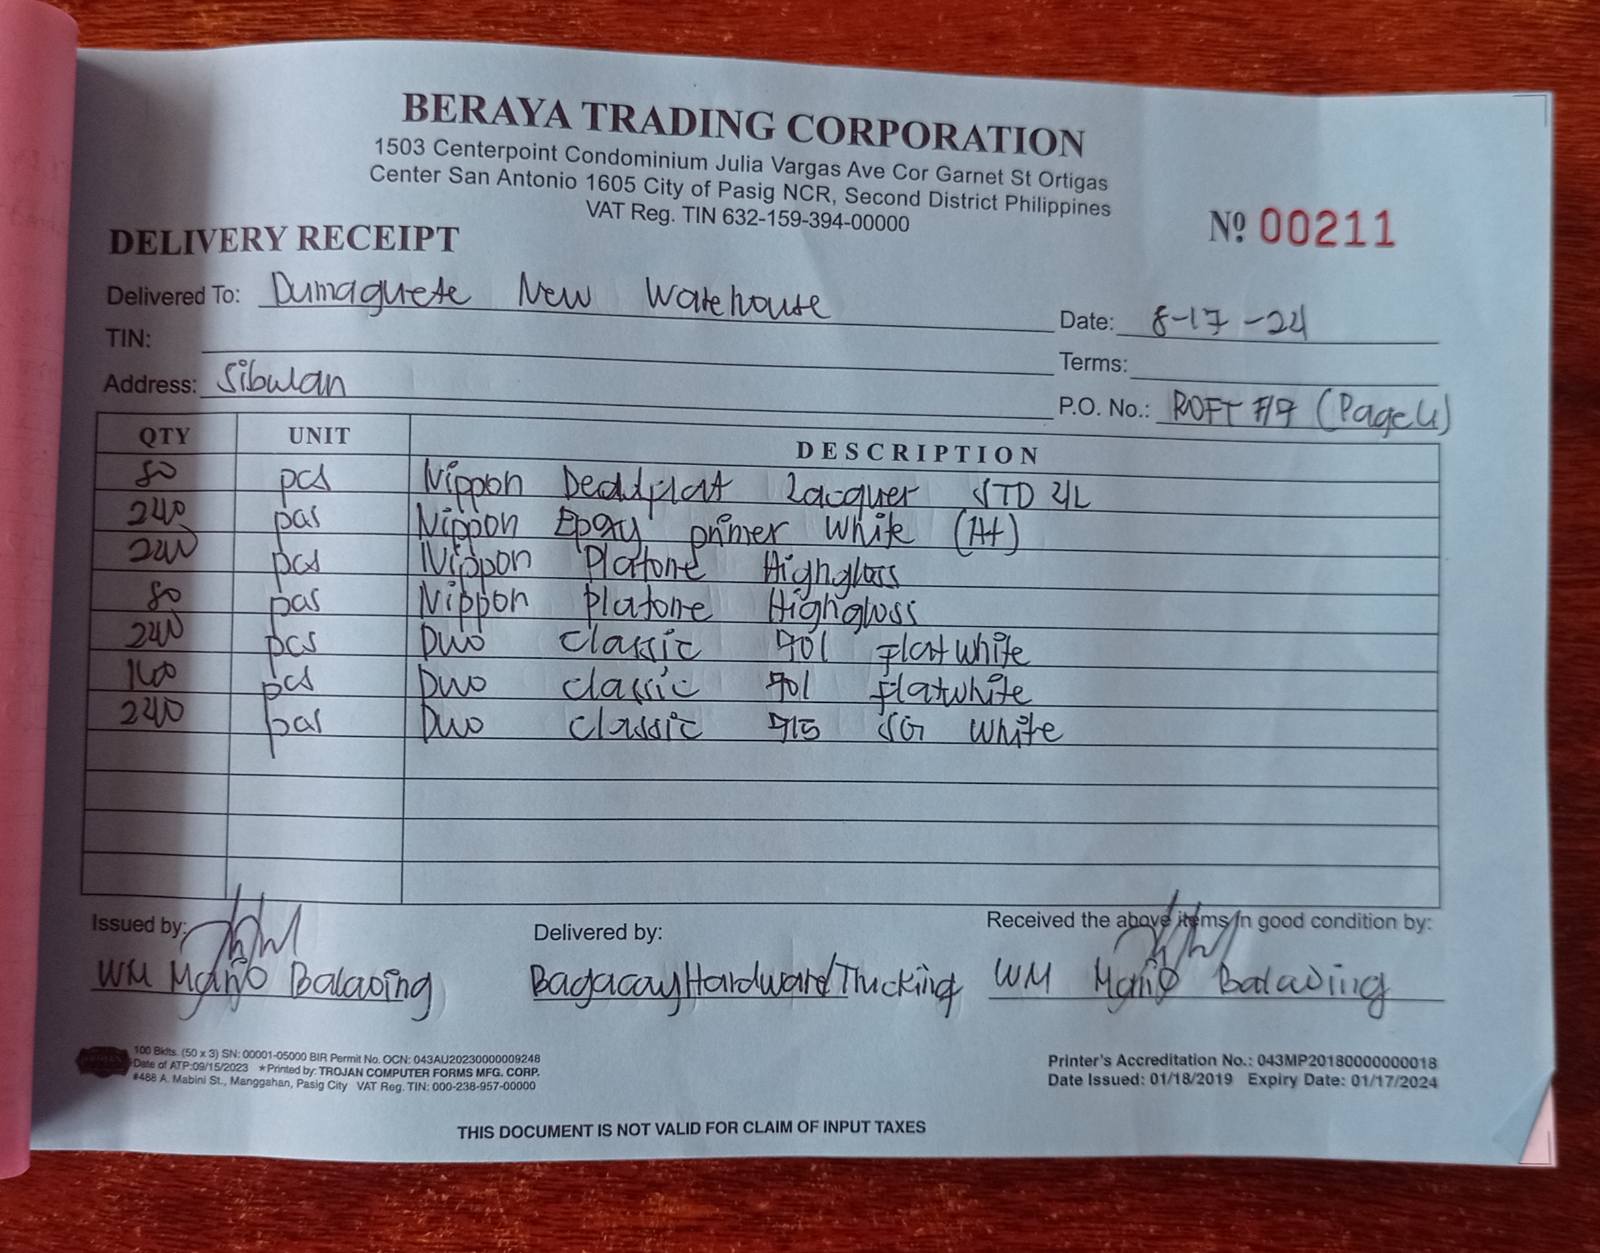 BERAYA TRADING CORPORATION
1503 Centerpoint Condominium Julia Vargas Ave Cor Garnet St Ortigas
Center San Antonio 1605 City of Pasig NCR, Second District Philippines
VAT Reg. TIN 632-159-394-00000
Nº 00211
DELIVERY RECEIPT
Delivered To: Dumaguete New Warehouse
Date: 8-17-24
TIN:
Terms:
Address: Sibulan
P.O. No.: ROFT #19 (Page 4)
QTY UNIT DESCRIPTION
80 pcs Nippon Deadflat Lacquer STD 4L
240 pcs Nippon Epoxy primer white (A+)
240 pcs Nippon Platone Highgloss
80 pcs Nippon Platone Highgloss
240 pcs Duo classic 701 Flat white
160 pcs Duo classic 701 flatwhite
240 pcs Duo classic 715 SG white
Issued by:
Delivered by:
Received the above items in good condition by:
WM Balaoing
Bagacay Hardware/Trucking
WM Balaoing
100 Bklts. (50 x 3) SN: 00001-05000 BIR Permit No. OCN: 043AU20230000009248
Date of ATP:09/15/2023 *Printed by: TROJAN COMPUTER FORMS MFG. CORP.
#488 A. Mabini St., Manggahan, Pasig City VAT Reg. TIN: 000-238-957-00000
Printer's Accreditation No.: 043MP20180000000018
Date Issued: 01/18/2019 Expiry Date: 01/17/2024
THIS DOCUMENT IS NOT VALID FOR CLAIM OF INPUT TAXES